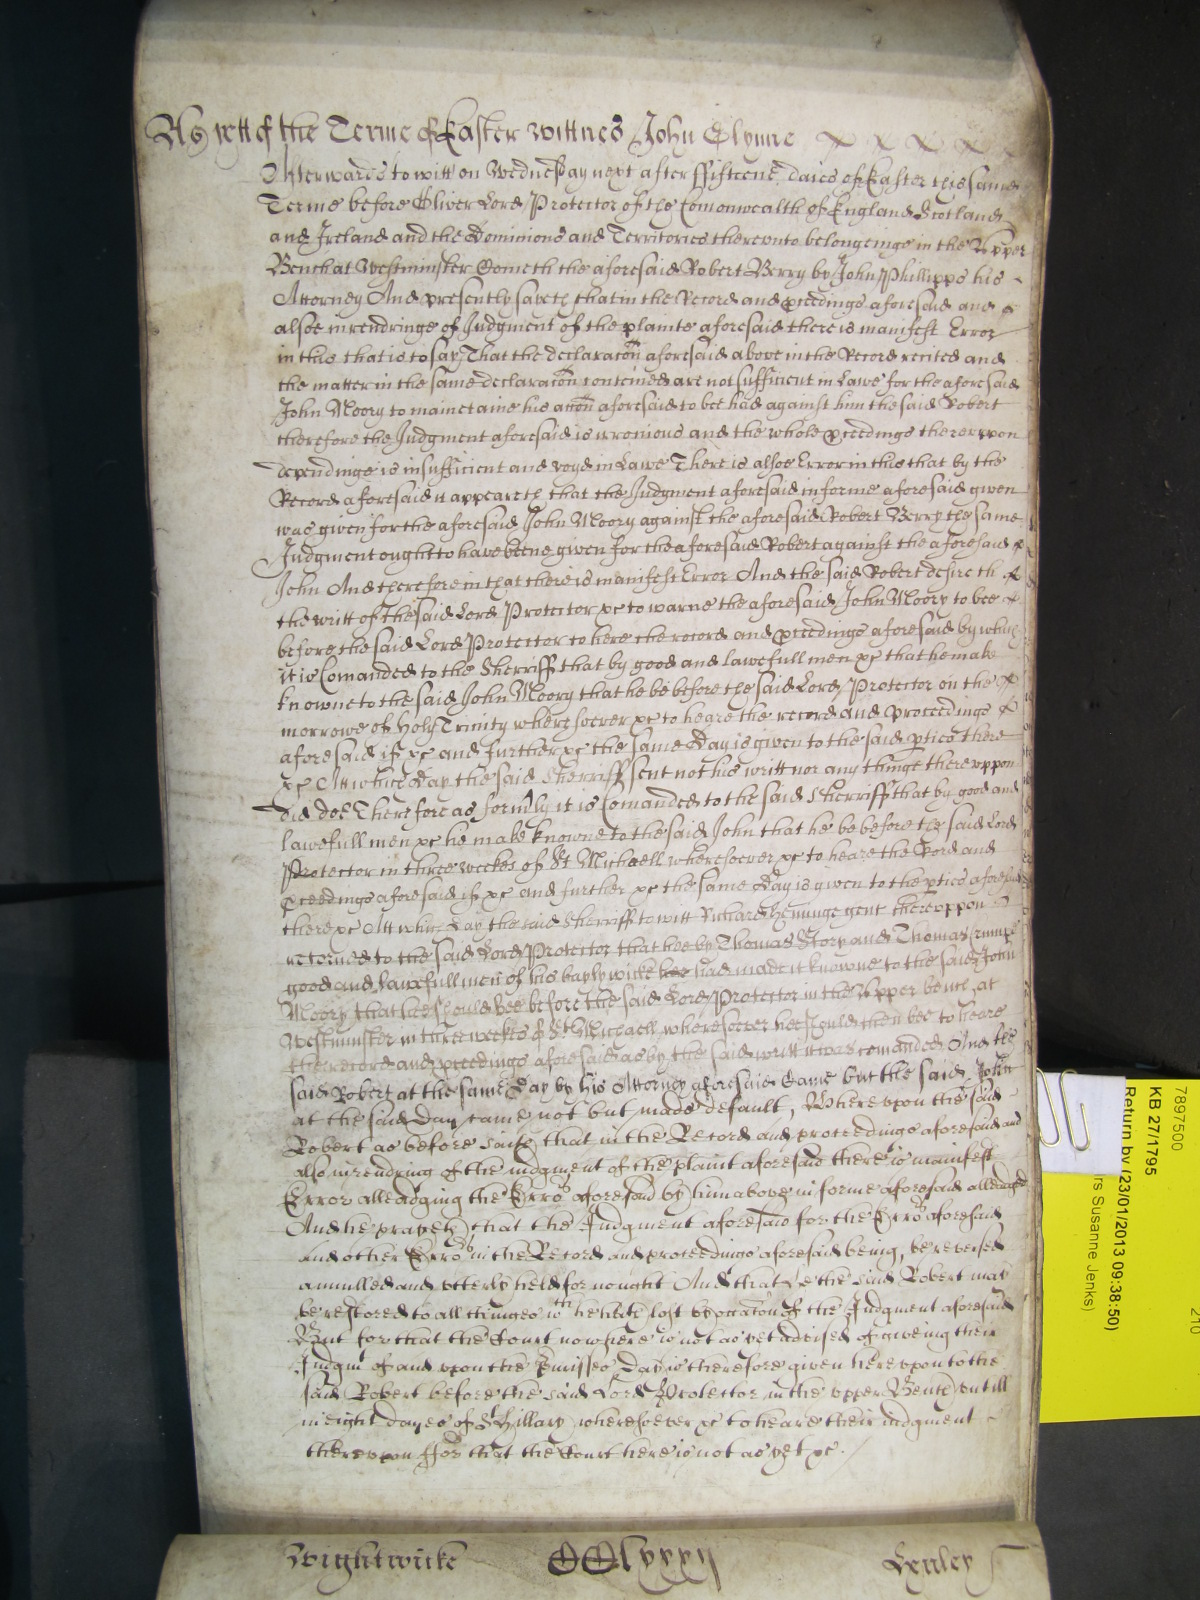 As yett of the Terme of Easter wittnes John Glynne
Afterwards to witt on Wednesday next after ffifteene daies of Easter this same
Terme before Oliver Lord Protector of the Comonwealth of England Scotland
and Ireland and the Dominions and Territories thereunto belongeinge in the Upper
Bench at Westminster Cometh the aforesaid Robert Berry by John Phillipps his
Attorney And presently sayeth that in the Record and pceedings aforesaid and
alsoe in rendringe of Judgment of the plainte aforesaid there is manifest Error
in this that is to say That the declaracon aforesaid above in the Record recited and
the matter in the same declaracon conteined are not sufficient in Lawe for the aforesaid
John Moory to mainetaine his accon aforesaid to bee had against him the said Robert
therefore the Judgment aforesaid is irronious and the whole pceedings thereuppon
dependinge is insufficient and voyd in Lawe There is alsoe Error in this that by the
Record aforesaid it appeareth that the Judgment aforesaid in forme aforesaid given
was given for the aforesaid John Moory against the aforesaid Robert Berry the same
Judgment ought to have beene given for the aforesaid Robert against the aforesaid
John And therefore in that there is manifest Error And the said Robert desireth
the writt of the said Lord Protector &c to warne the aforesaid John Moory to bee
before the said Lord Protector to here the record and pceedings aforesaid by which
it is Comanded to the Sherriff that by good and lawefull men &c that he make
knowne to the said John Moory that he be before the said Lord Protector on the
morrowe of Holy Trinity wheresoever &c to heare the record and proceedings
aforesaid if &c and further &c the same Day is given to the said pties there
&c Att which day the said Sherriff sent not his writt nor any thinge thereuppon
did doe Therefore as formly it is Comanded to the said Sherriff that by good and
lawefull men &c he make knowne to the said John that he be before the said Lord
Protector in three weekes of St Michaell wheresoever &c to heare the Cord and
pceedings aforesaid if &c and further &c the same Day is given to the pties aforesaid
there &c Att which day the said Sherriff to witt Richard gent thereuppon
retorned to the said Lord Protector that hee by Thomas Story and Thomas
good and lawefull men of his baylywicke had made it knowne to the said John
Moory that hee should bee before the said Lord Protector in the Upper bench at
Westminster in three weekes of St Michaell wheresoever hee should then bee to heare
the record and pceedings aforesaid as by the said writt it was comanded And the
said Robert at the same Day by his Attorney aforesaid Came but the said John
at the said Day came not but made default, Whereupon the said
Robert as before saith that in the Record and proceedings aforesaid and
also in rendring of the judgment of the plaint aforesaid there is manifest
Error alleadging the Errors aforesaid by him above in forme aforesaid alleadged
And he prayeth that the Judgment aforesaid for the Errors aforesaid
and other Errors in the Record and proceedings aforesaid being, be reversed
annulled and utterly held for nought And that he the said Robert may
be restored to all thinges wch he hath lost by occacon of the Judgment aforesaid
But for that the Court now here is not as yet advised of giveing their
Judgmt of and upon the pmisses Day is therefore given here upon to the
said Robert before the said Lord Protector in the upper Bench untill
in eight dayes of St Hillary wheresoever &c to heare their judgment
thereupon ffor that the Court here is not as yet &c.
Wightwicke CClxxxij
7897500
KB 27/1795
Return by (23/01/2013 09:38:50)
rs Susanne Jenks)
210